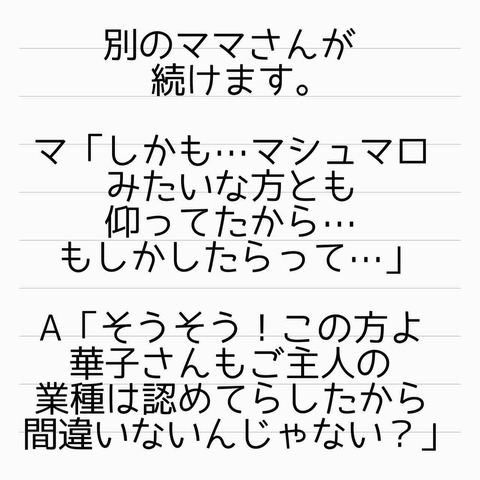 別のママさんが
続けます。
マ「しかも…マシュマロ
みたいな方とも
仰ってたから…
もしかしたらって…」
A「そうそう！この方よ
華子さんもご主人の
業種は認めてらしたから
間違いないんじゃない？」